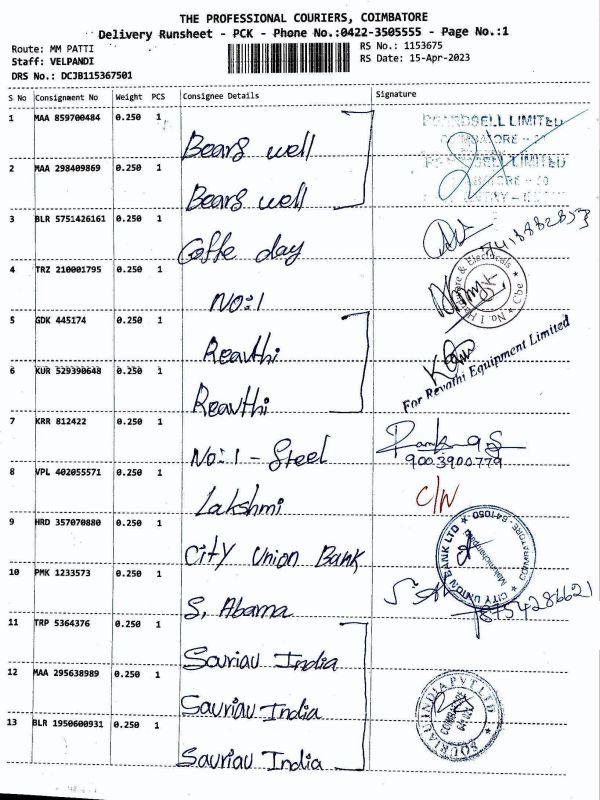 THE PROFESSIONAL COURIERS, COIMBATORE
Delivery Runsheet - PCK - Phone No.:0422-3505555 - Page No.:1
Route: MM PATTI
RS No.: 1153675
Staff: VELPANDI
RS Date: 15-Apr-2023
DRS No.: DCJB115367501
S No Consignment No Weight PCS Consignee Details Signature
1 MAA 859700484 0.250 1 Bears well
BEARDSELL LIMITED
2 MAA 298409869 0.250 1 Bears well
BEARDSELL LIMITED
3 BLR 5751426161 0.250 1 Coffe day
4 TRZ 210001795 0.250 1 No:1
No.1 Hardware & Electricals * Cbe *
5 GDK 445174 0.250 1 Reavthi
6 KUR 529390648 0.250 1 Reavthi
For Revathi Equipment Limited
7 KRR 812422 0.250 1 No:1 - Steel
9003900779
8 VPL 402055571 0.250 1 Lakshmi C/W
9 HRD 357070880 0.250 1 City Union Bank
CITY UNION BANK LTD * COIMBATORE - 641050 *
10 PMK 1233573 0.250 1 S. Abama
8754286621
11 TRP 5364376 0.250 1 Souriau India
12 MAA 295638989 0.250 1 Souriau India
SOURIAU INDIA PVT LTD
13 BLR 1950600931 0.250 1 Souriau India